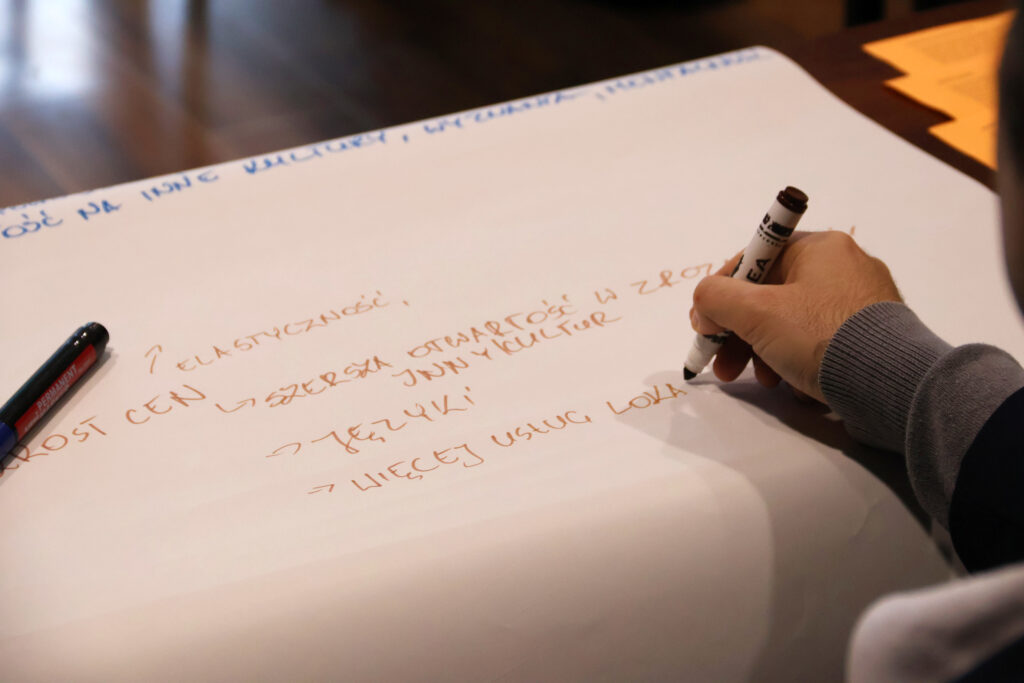 OŚĆ NA INNE KULTURY, WYZNANIA, MENTALNOŚĆ
↗ ELASTYCZNOŚĆ,
ROST CEN
↳ SZERSZA OTWARTOŚĆ W ZROZ
INNY KULTUR
→ JĘZYKI
→ WIĘCEJ USŁUG LOKA
PERMANENT